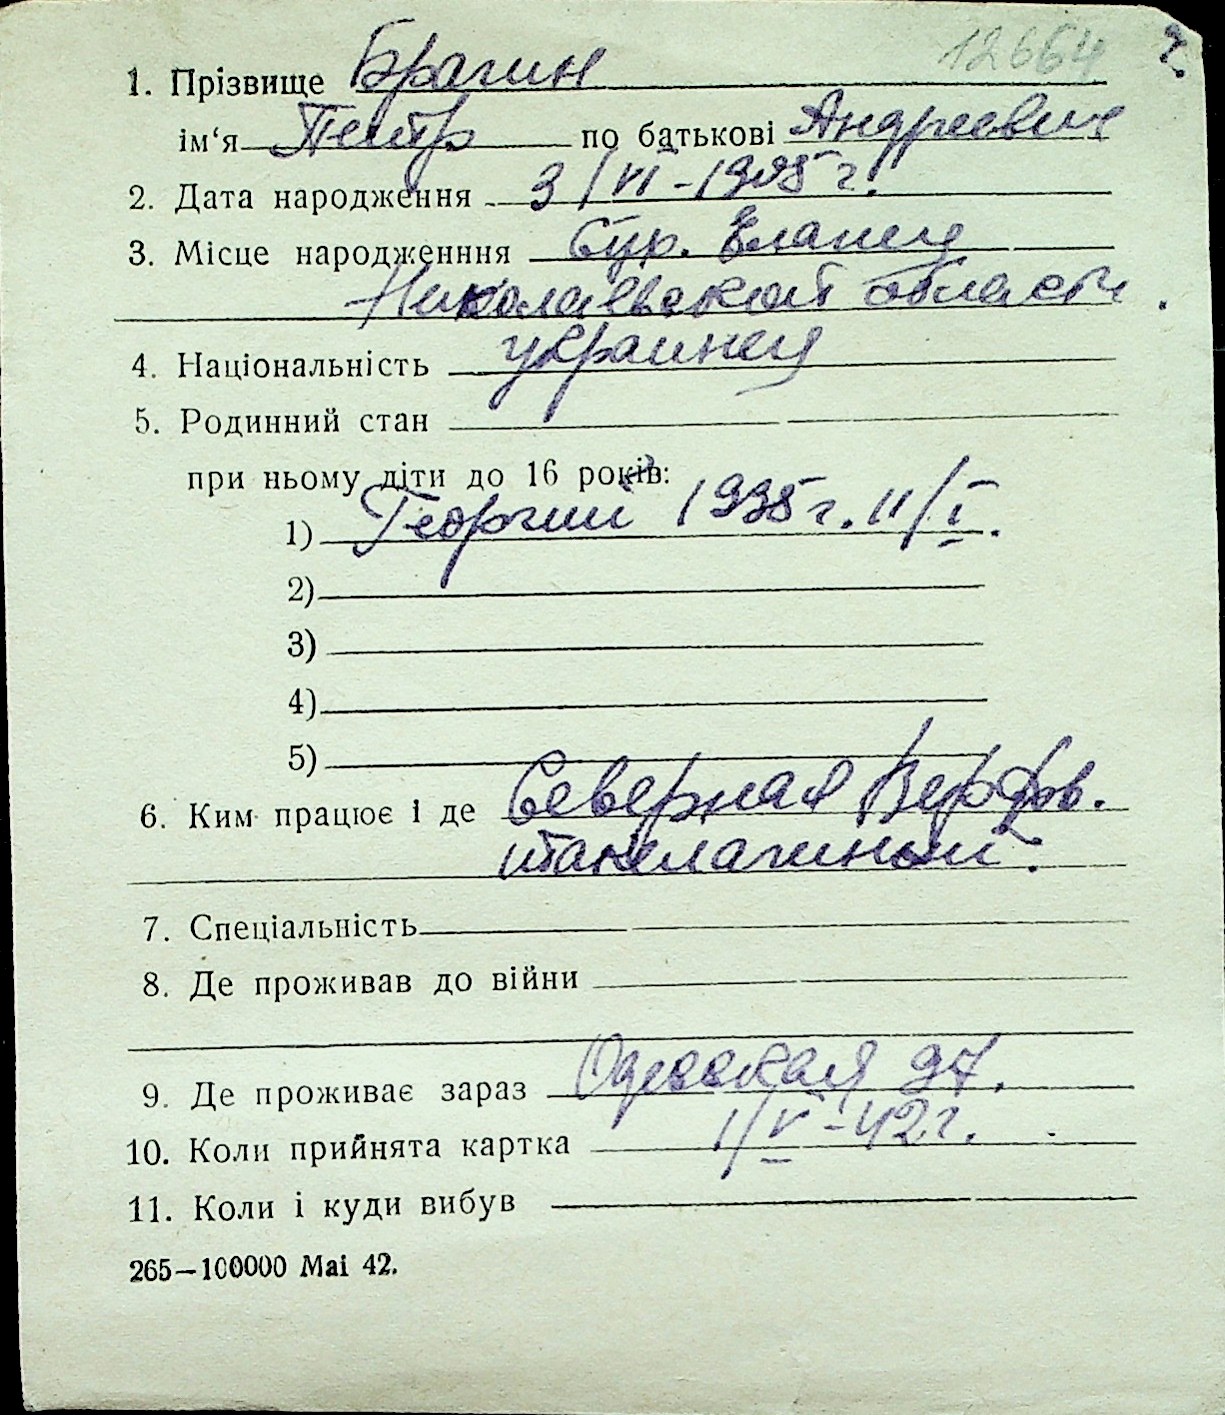 12664 ч.
1. Прізвище Брагин
ім‘я Петр по батькові Андреевич
2. Дата народження 3/VI-1905 г.
3. Місце народженння Сур. Еланец
Николаевской области.
4. Національність украинец
5. Родинний стан
при ньому діти до 16 років:
1) Георгий 1935 г. 11/I.
2)
3)
4)
5)
6. Ким працює і де Северная Верфь.
такелажный.
7. Спеціальність
8. Де проживав до війни
9. Де проживає зараз Одесская 97.
10. Коли прийнята картка 1/V-42 г.
11. Коли і куди вибув
265—100000 Mai 42.